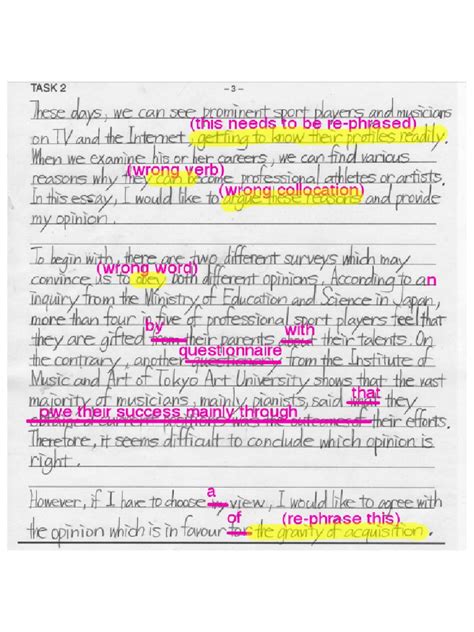 TASK 2
– 3 –
These days, we can see prominent sport players and musicians
(this needs to be re-phrased)
on TV and the Internet, getting to know their profiles readily.
When we examine his or her careers, we can find various
(wrong verb)
reasons why they can become professional athletes or artists.
(wrong collocation)
In this essay, I would like to argue these reasons and provide
my opinion.
To begin with, there are two different surveys which may
(wrong word)
convince us to obey both different opinions. According to an
inquiry from the Ministry of Education and Science in Japan,
more than four in five of professional sport players feel that
by with
they are gifted from their parents about their talents. On
questionnaire
the contrary, another from the Institute of
Music and Art of Tokyo Art University shows that the vast
that
majority of musicians, mainly, pianists, said they
owe their success mainly through
their efforts.
Therefore, it seems difficult to conclude which opinion is
right.
a
However, if I have to choose my view, I would like to agree with
of (re-phrase this)
the opinion which is in favour for the gravity of acquisition.